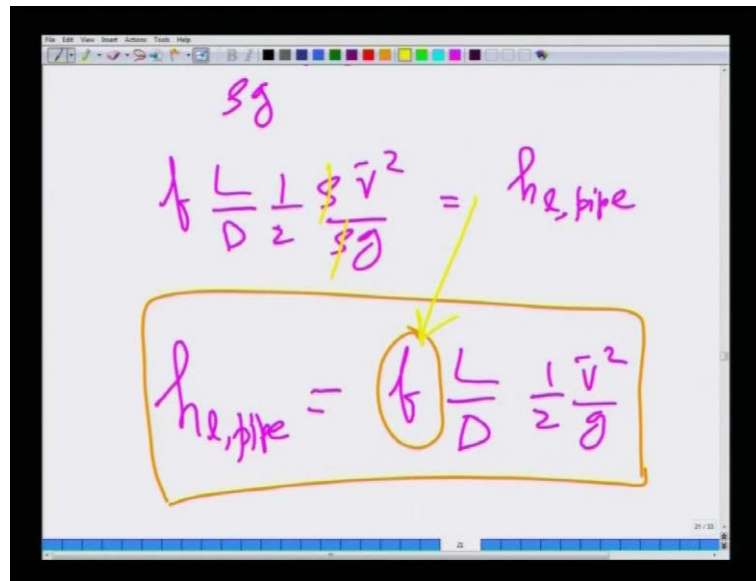 File Edit View Insert Actions Tools Help
ρg
f L/D 1/2 ρv̄²/ρg = h_{l,pipe}
h_{l,pipe} = f L/D 1/2 v̄²/g
21 / 33
21